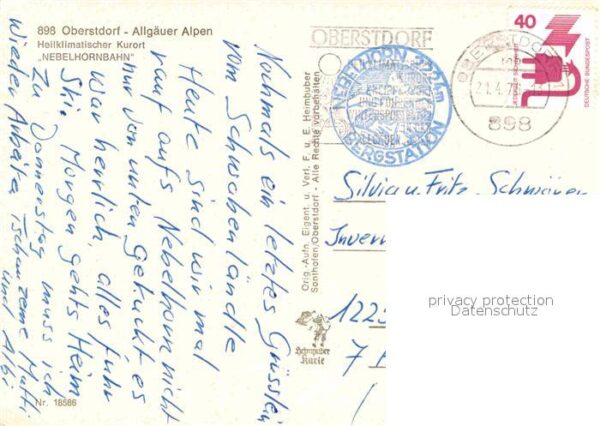 898 Oberstdorf - Allgäuer Alpen
Heilklimatischer Kurort
„NEBELHORNBAHN"
Nochmals ein letztes Grüsslein
vom Schwabenländle
Heute sind wir mal
rauf aufs Nebelhorn nicht
nur von unten geguckt es
war herrlich, alles fuhr
Ski. Morgen gehts Heim
Zu Donnerstag muss ich
wieder Arbeite
und
Nr. 18586
Orig.-Aufn. Eigent. u. Verl. F. u. E. Heimhuber
Sonthofen/Oberstdorf - Alle Rechte vorbehalten
Karte
OBERSTDORF
NEBELHORN 2224m
BERGSTATION
OBERSTDORF
21.4.76
898
40
JEDERZEIT SICHERHEIT
DEUTSCHE BUNDESPOST
Silvia u. Fritz
1225
7
privacy protection
Datenschutz